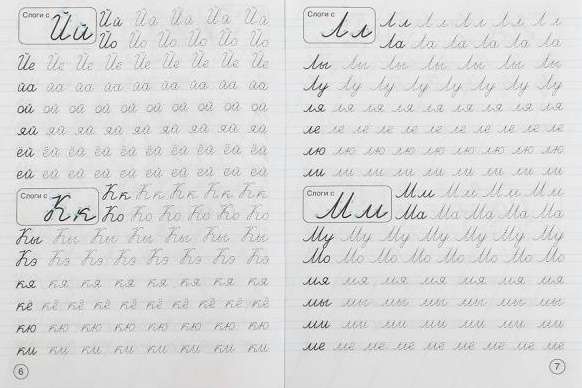 Слоги с Йй
Йй Йй Йй Йй Йй
Йо Йо Йо Йо Йо Йо
Йе Йе Йе Йе Йе Йе Йе Йе Йе
йа йа йа йа йа йа йа йа йа
ой ой ой ой ой ой ой ой ой
яй яй яй яй яй яй яй яй яй
ёй ёй ёй ёй ёй ёй ёй ёй ёй ёй
ей ей ей ей ей ей ей ей ей ей
Слоги с Кк
Кк Кк Кк Кк Кк
Ко Ко Ко Ко Ко Ко
Кы Кы Кы Кы Кы Кы Кы
Кэ Кэ Кэ Кэ Кэ Кэ Кэ Кэ
кя кя кя кя кя кя кя кя
кё кё кё кё кё кё кё кё кё
кю кю кю кю кю кю кю кю
ки ки ки ки ки ки ки ки
6
Слоги с Лл
Лл Лл Лл Лл Лл Лл
Ла Ла Ла Ла Ла Ла
Лы Лы Лы Лы Лы Лы Лы
Лу Лу Лу Лу Лу Лу Лу
ля ля ля ля ля ля ля ля ля
ле ле ле ле ле ле ле ле ле ле
лю лю лю лю лю лю лю лю
ли ли ли ли ли ли ли ли ли
Слоги с Мм
Мм Мм Мм Мм
Ма Ма Ма Ма Ма
Му Му Му Му Му Му Му
Мо Мо Мо Мо Мо Мо Мо
мя мя мя мя мя мя мя
мы мы мы мы мы мы мы
ми ми ми ми ми ми ми
ме ме ме ме ме ме ме ме ме
7